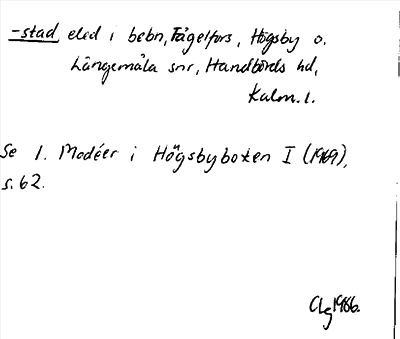 -stad eled i bebn, Fågelfors, Högsby o.
Långemåla snr, Handbörds hd,
Kalm. l.
Se I. Modéer i Högsbyboken I (1969),
s. 62.
CLg 1986.